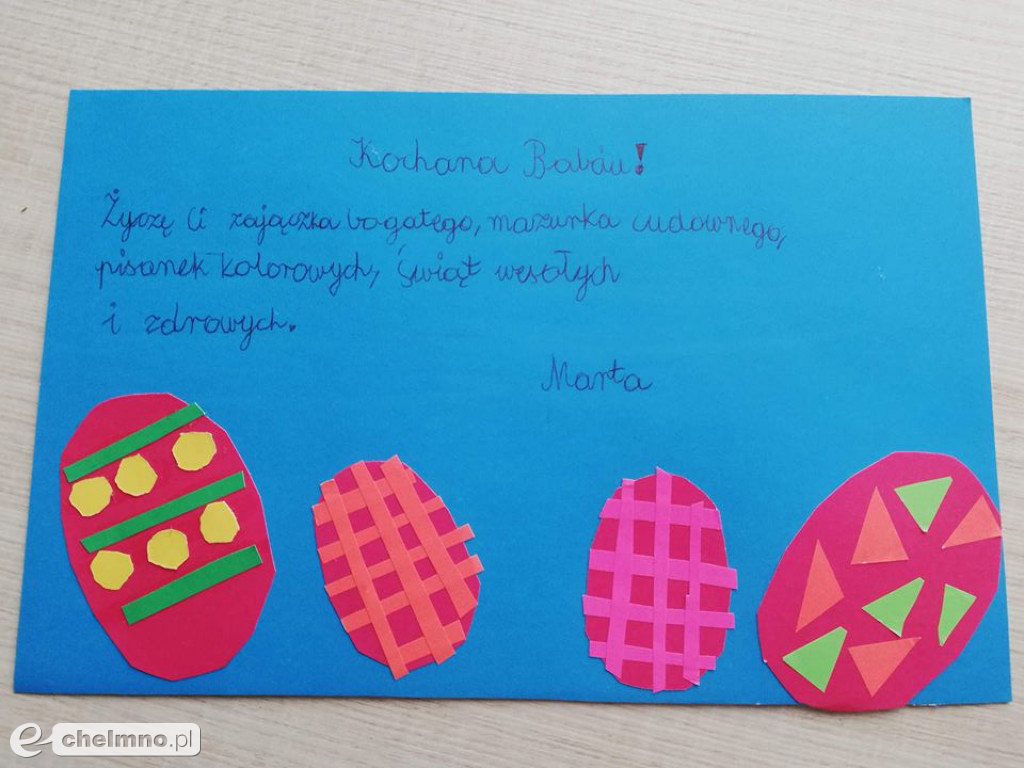 Kochana Babciu!
Życzę Ci zajączka bogatego, mazurka cudownego,
pisanek kolorowych, Świąt wesołych
i zdrowych.
Marta
e-chelmno.pl